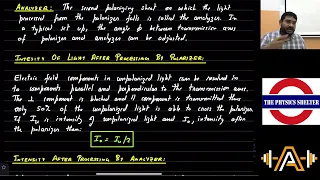 ANALYZER: The second polarizing sheet on which the light
processed from the polarizer falls is called the analyzer. In
a typical set up, the angle ϕ between transmission axes
of polarizer and analyzer can be adjusted.
INTENSITY OF LIGHT AFTER PROCESSING BY POLARIZER:
Electric field components in unpolarized light can be resolved in
to components parallel and perpendicular to the transmission axes.
The ⊥ component is blocked and || component is transmitted thus
only 50% of the unpolarized light is able to cross the polarizer.
If I₀ is intensity of unpolarized light and intensity after
the polarizer then:
= I₀/2
INTENSITY AFTER PROCESSING BY ANALYZER:
THE PHYSICS SHELTER
A